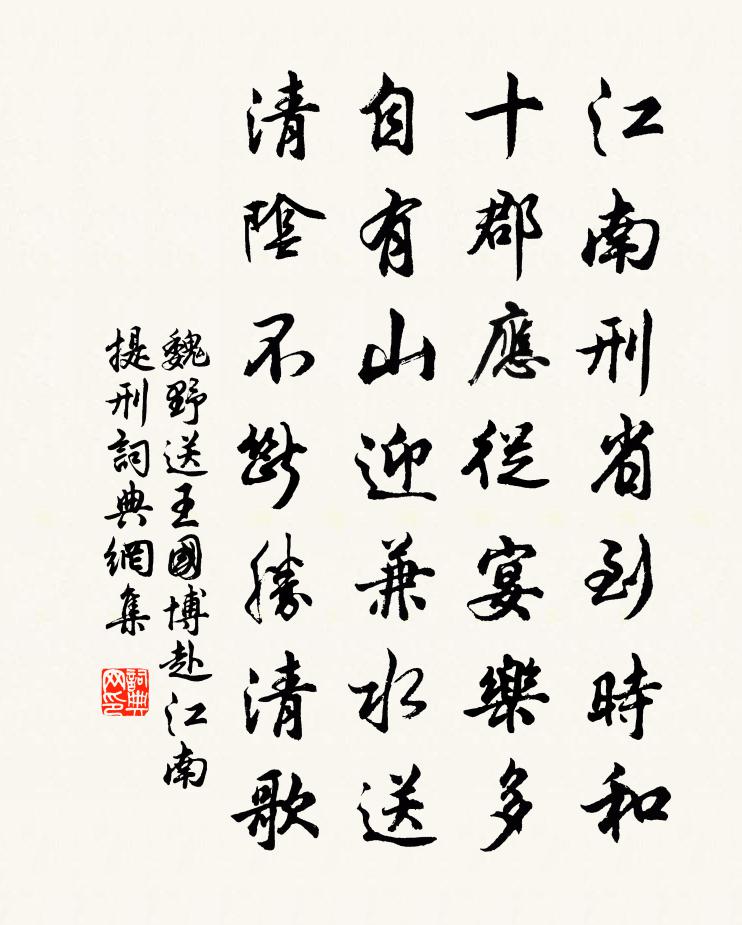 江南刑省到時和
十郡應從宴樂多
自有山迎兼水送
清陰不斷勝清歌
魏野送王國博赴江南
提刑詞典網集
詞典网印